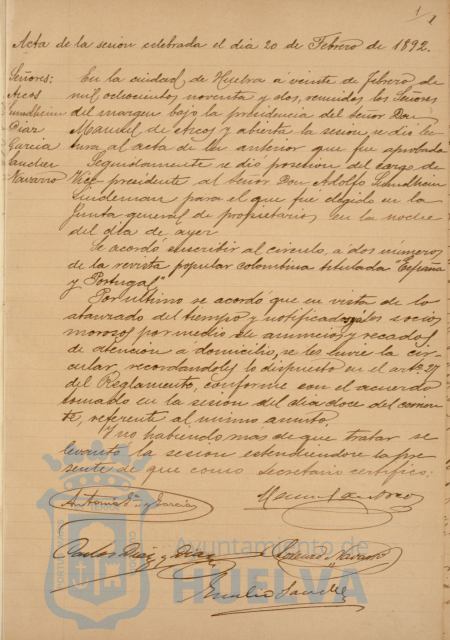 1
Acta de la sesion celebrada el dia 20 de Febrero de 1892.
Señores:
Arcos
Sundheim
Diaz
Garcia
Sanchez
Navarro
En la ciudad de Huelva á veinte de febrero de
mil ochocientos noventa y dos, reunidos los Señores
del margen bajo la presidencia del Señor Don
Manuel de Arcos y abierta la sesion se dió lec
tura al acta de la anterior que fue aprobada
Seguidamente se dió posesion del cargo de
Vice-presidente al Señor Don Adolfo Sundheim
Lindeman para el que fue elegido en la
Junta general de propietarios en la noche
del dia de ayer.
Se acordó suscribir al circulo, á dos números
de la revista popular colombina titulada "España
y Portugal"
Por ultimo se acordó que en vista de lo
avanzado del tiempo y notificados ya los socios
morosos por medio de anuncios y recados
de atencion á domicilio, se les envie la cir
cular recordandoles lo dispuesto en el artº 27
del Reglamento, conforme con el acuerdo
tomado en la sesion del dia doce del corrien
te, referente al mismo asunto.
Y no habiendo mas de que tratar se
levantó la sesion estendiendose la pre
sente de que como Secretario certifico:
Antonio Gª y Garcia
Manuel de Arcos
Carlos Diaz y Diaz
Lorenzo Navarro
Emilio Sanchez
Ayuntamiento de
HUELVA